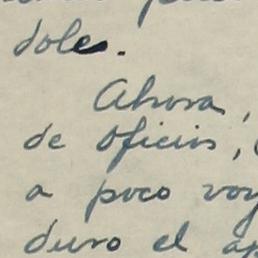 doles.
Ahora,
de oficios,
a poco voy
duro el ap